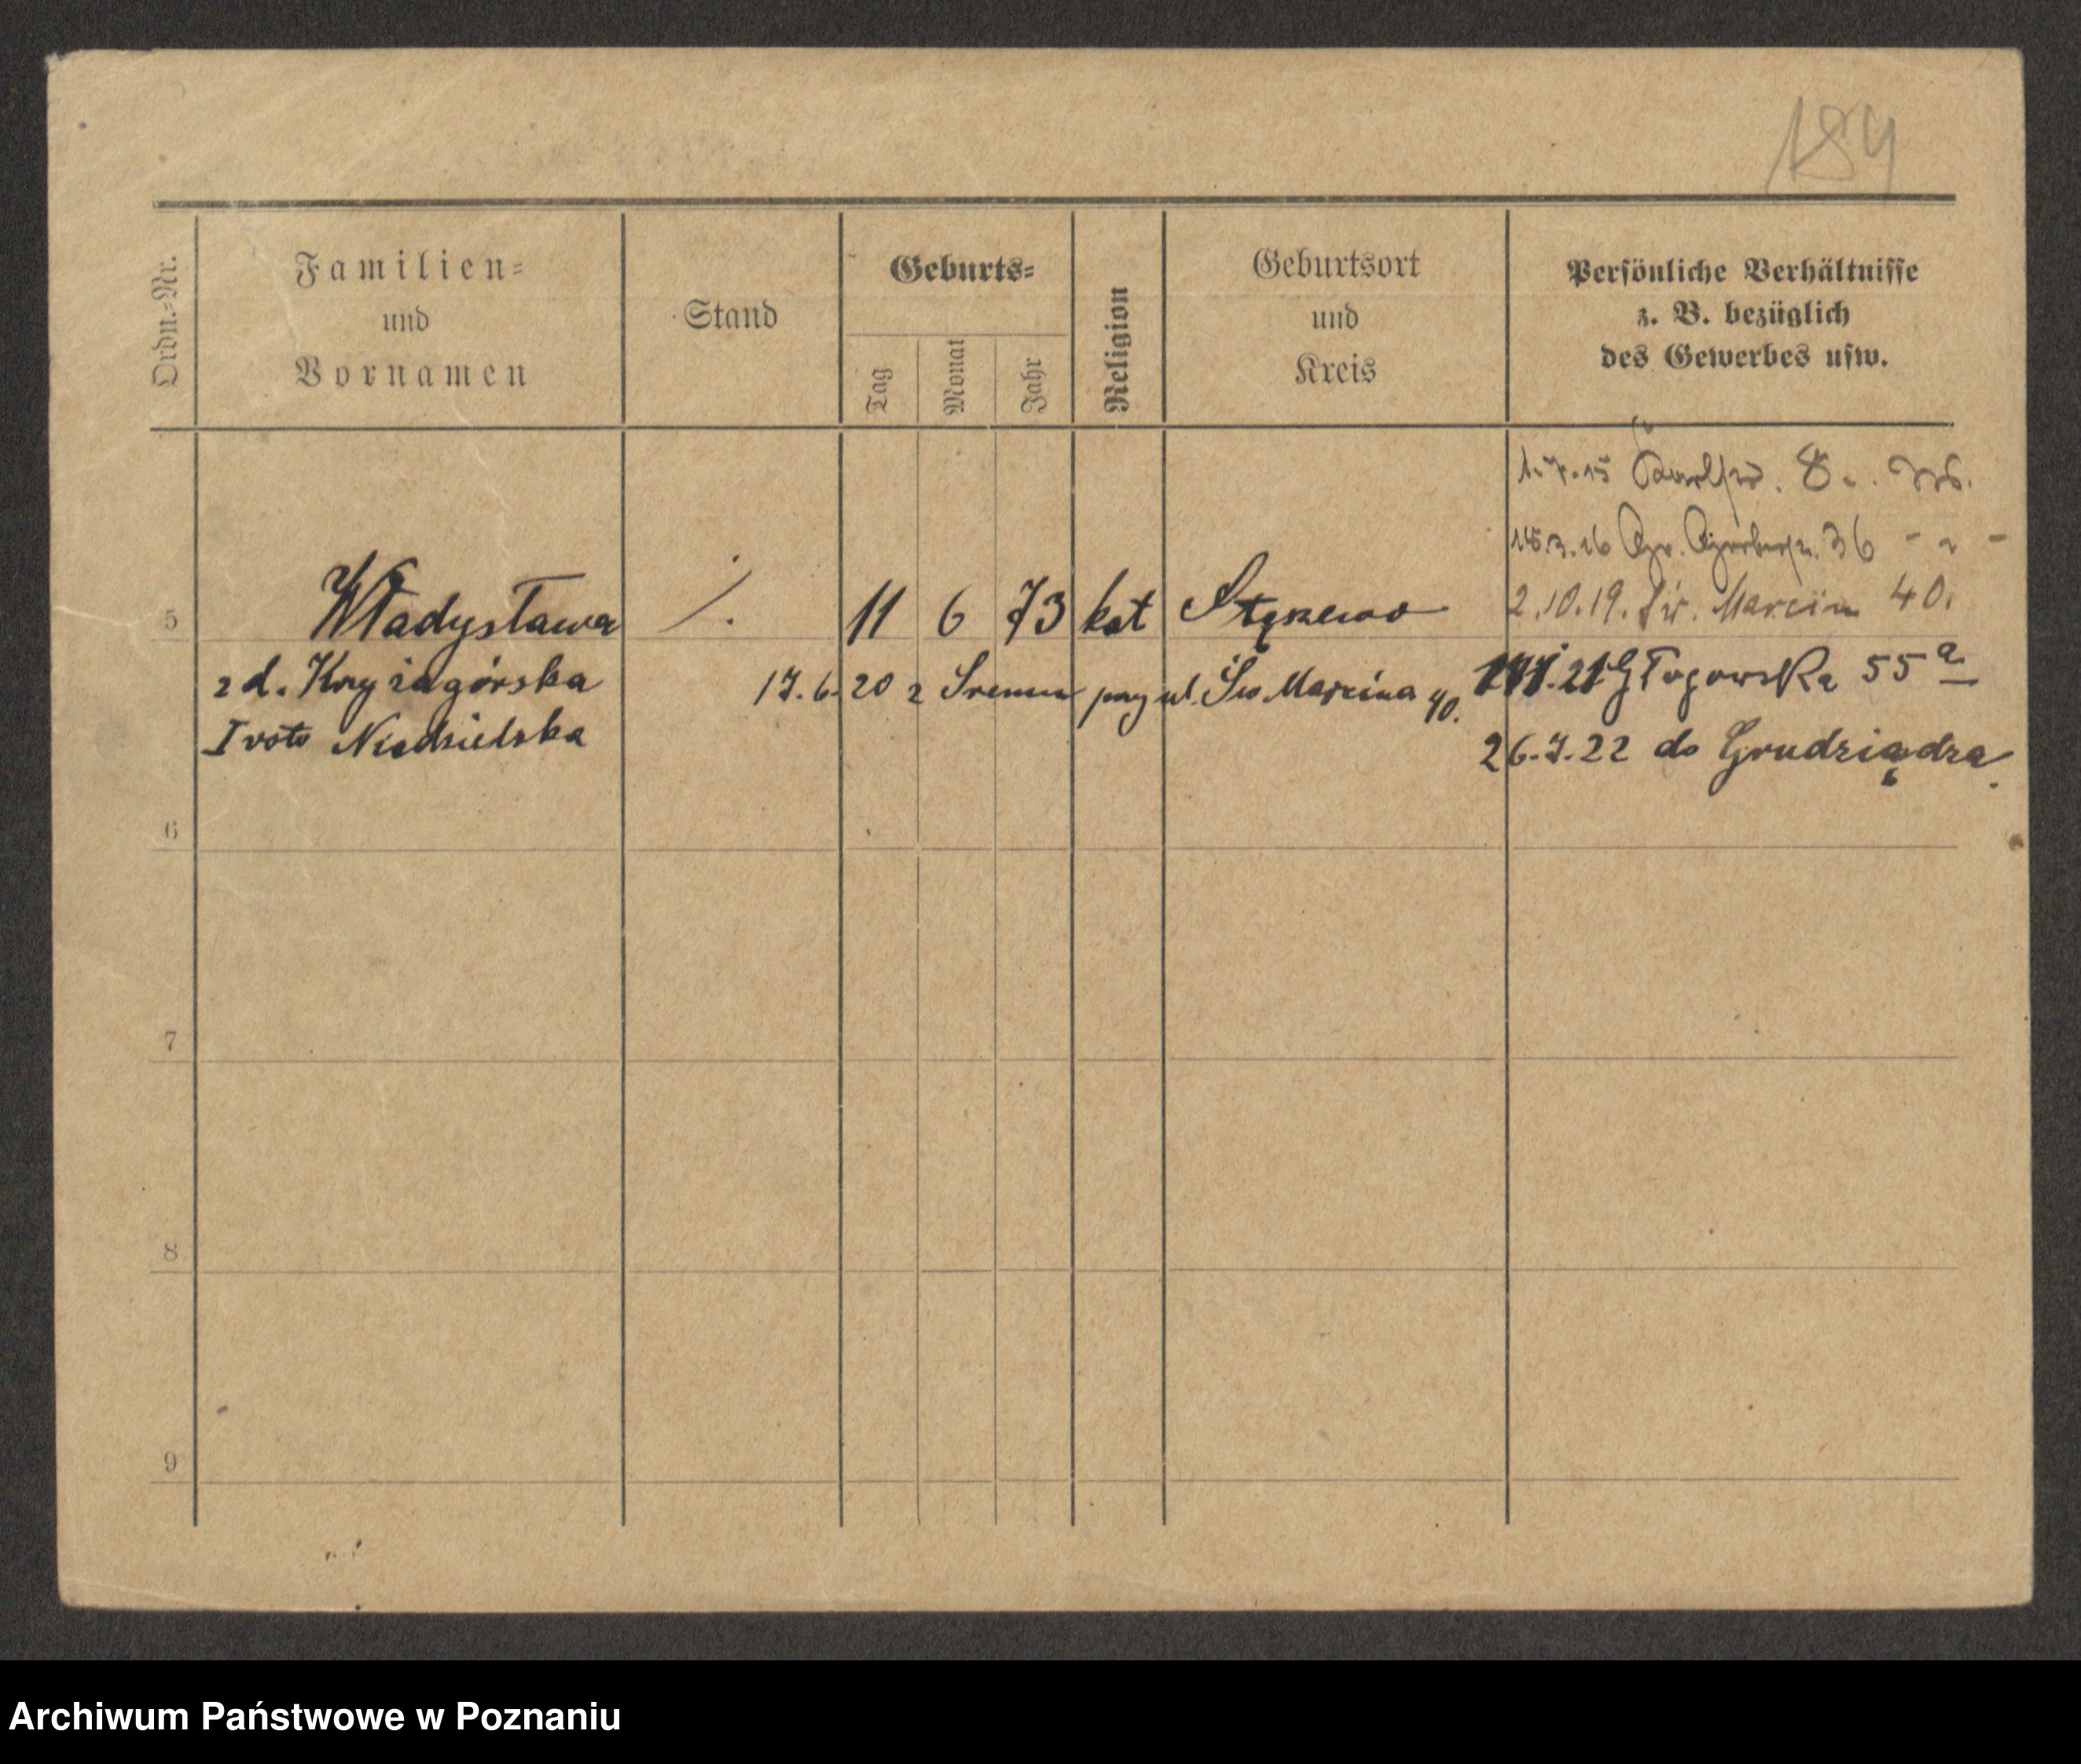 184
Ordn.=Nr.
Familien=
und
Vornamen
Stand
Geburts=
Tag
Monat
Jahr
Religion
Geburtsort
und
Kreis
Persönliche Verhältnisse
z. B. bezüglich
des Gewerbes usw.
1.7.15 8
15.3.16 Gr. Gerberstr. 36
2.10.19. Św. Marcin 40.
5 Władysława /. 11 6 73 kat Stęszewo
zd. Krzyżagórska 17.6.20 z Śremu przy ul. Św Marcina 40. 21 Głogowska 55 a
I voto Niedzielska
26.7.22 do Grudziądza.
6
7
8
9
Archiwum Państwowe w Poznaniu